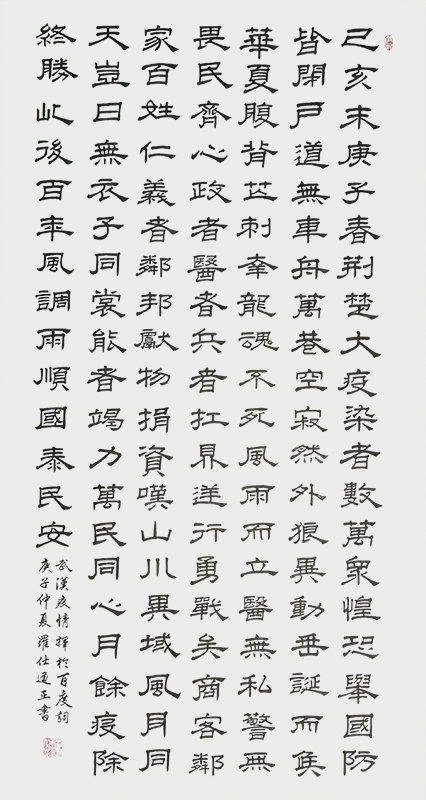 己亥末庚子春荊楚大疫染者數萬衆惶恐舉國防
皆閉戶道無車舟萬巷空寂然外狼異動垂誕而候
華夏腹背芒刺幸龍魂不死風雨而立醫無私警無
畏民齊心政者醫者兵者扛鼎逆行勇戰矣商客鄰
家百姓仁義者鄰邦獻物捐資嘆山川異域風月同
天豈曰無衣子同裳能者竭力萬民同心月餘疫除
終勝此後百年風調雨順國泰民安
武漢疫情擇於百度詞
庚子仲夏羅仕通正書